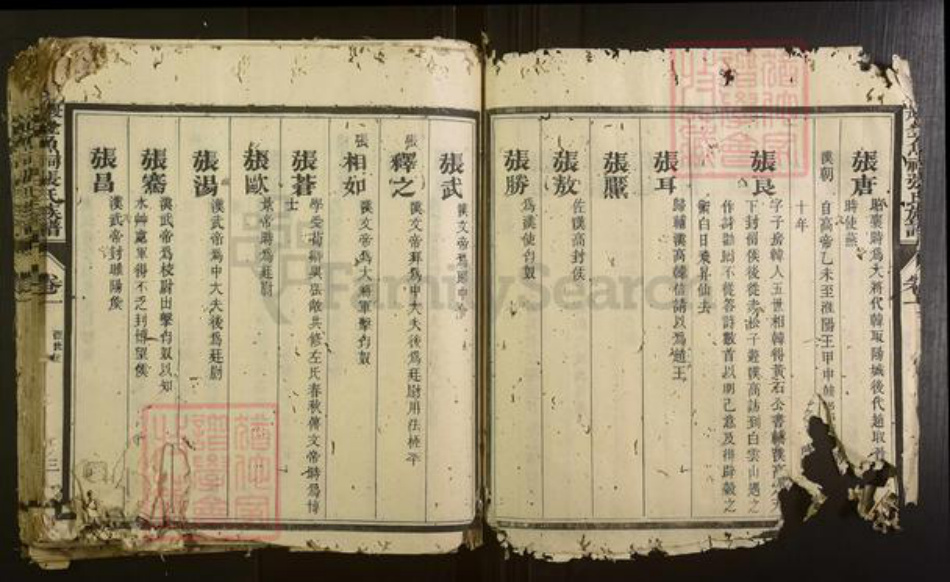 張唐
昭襄時為大將代韓取陽城後代趙取首
時使燕
漢朝
自高帝乙未至淮陽王甲申
十年
張良
字子房韓人五世相韓得黃石公書輔漢高
下封留侯後從赤松子遊漢高訪到白雲山遇之
作詩勸歸不從答詩數首以明己意及得辟穀之
術白日飛昇仙去
張耳
歸輔漢高韓信請以為趙王
張黶
張敖
佐漢高封侯
張勝
為漢使匈奴
張武
漢文帝為郎中令
張釋之
漢文帝拜為中大夫後為廷尉用法持平
張相如
漢文帝為大將軍擊匈奴
張蒼
學受荀卿與張敞共修左氏春秋傳文帝時為博
士
張歐
景帝時為廷尉
張湯
漢武帝為中大夫後為廷尉
張騫
漢武帝為校尉出擊匈奴以知
水艸處軍得不乏封博望侯
張昌
漢武帝封睢陽侯
張氏族譜
卷一
三
FamilySearch